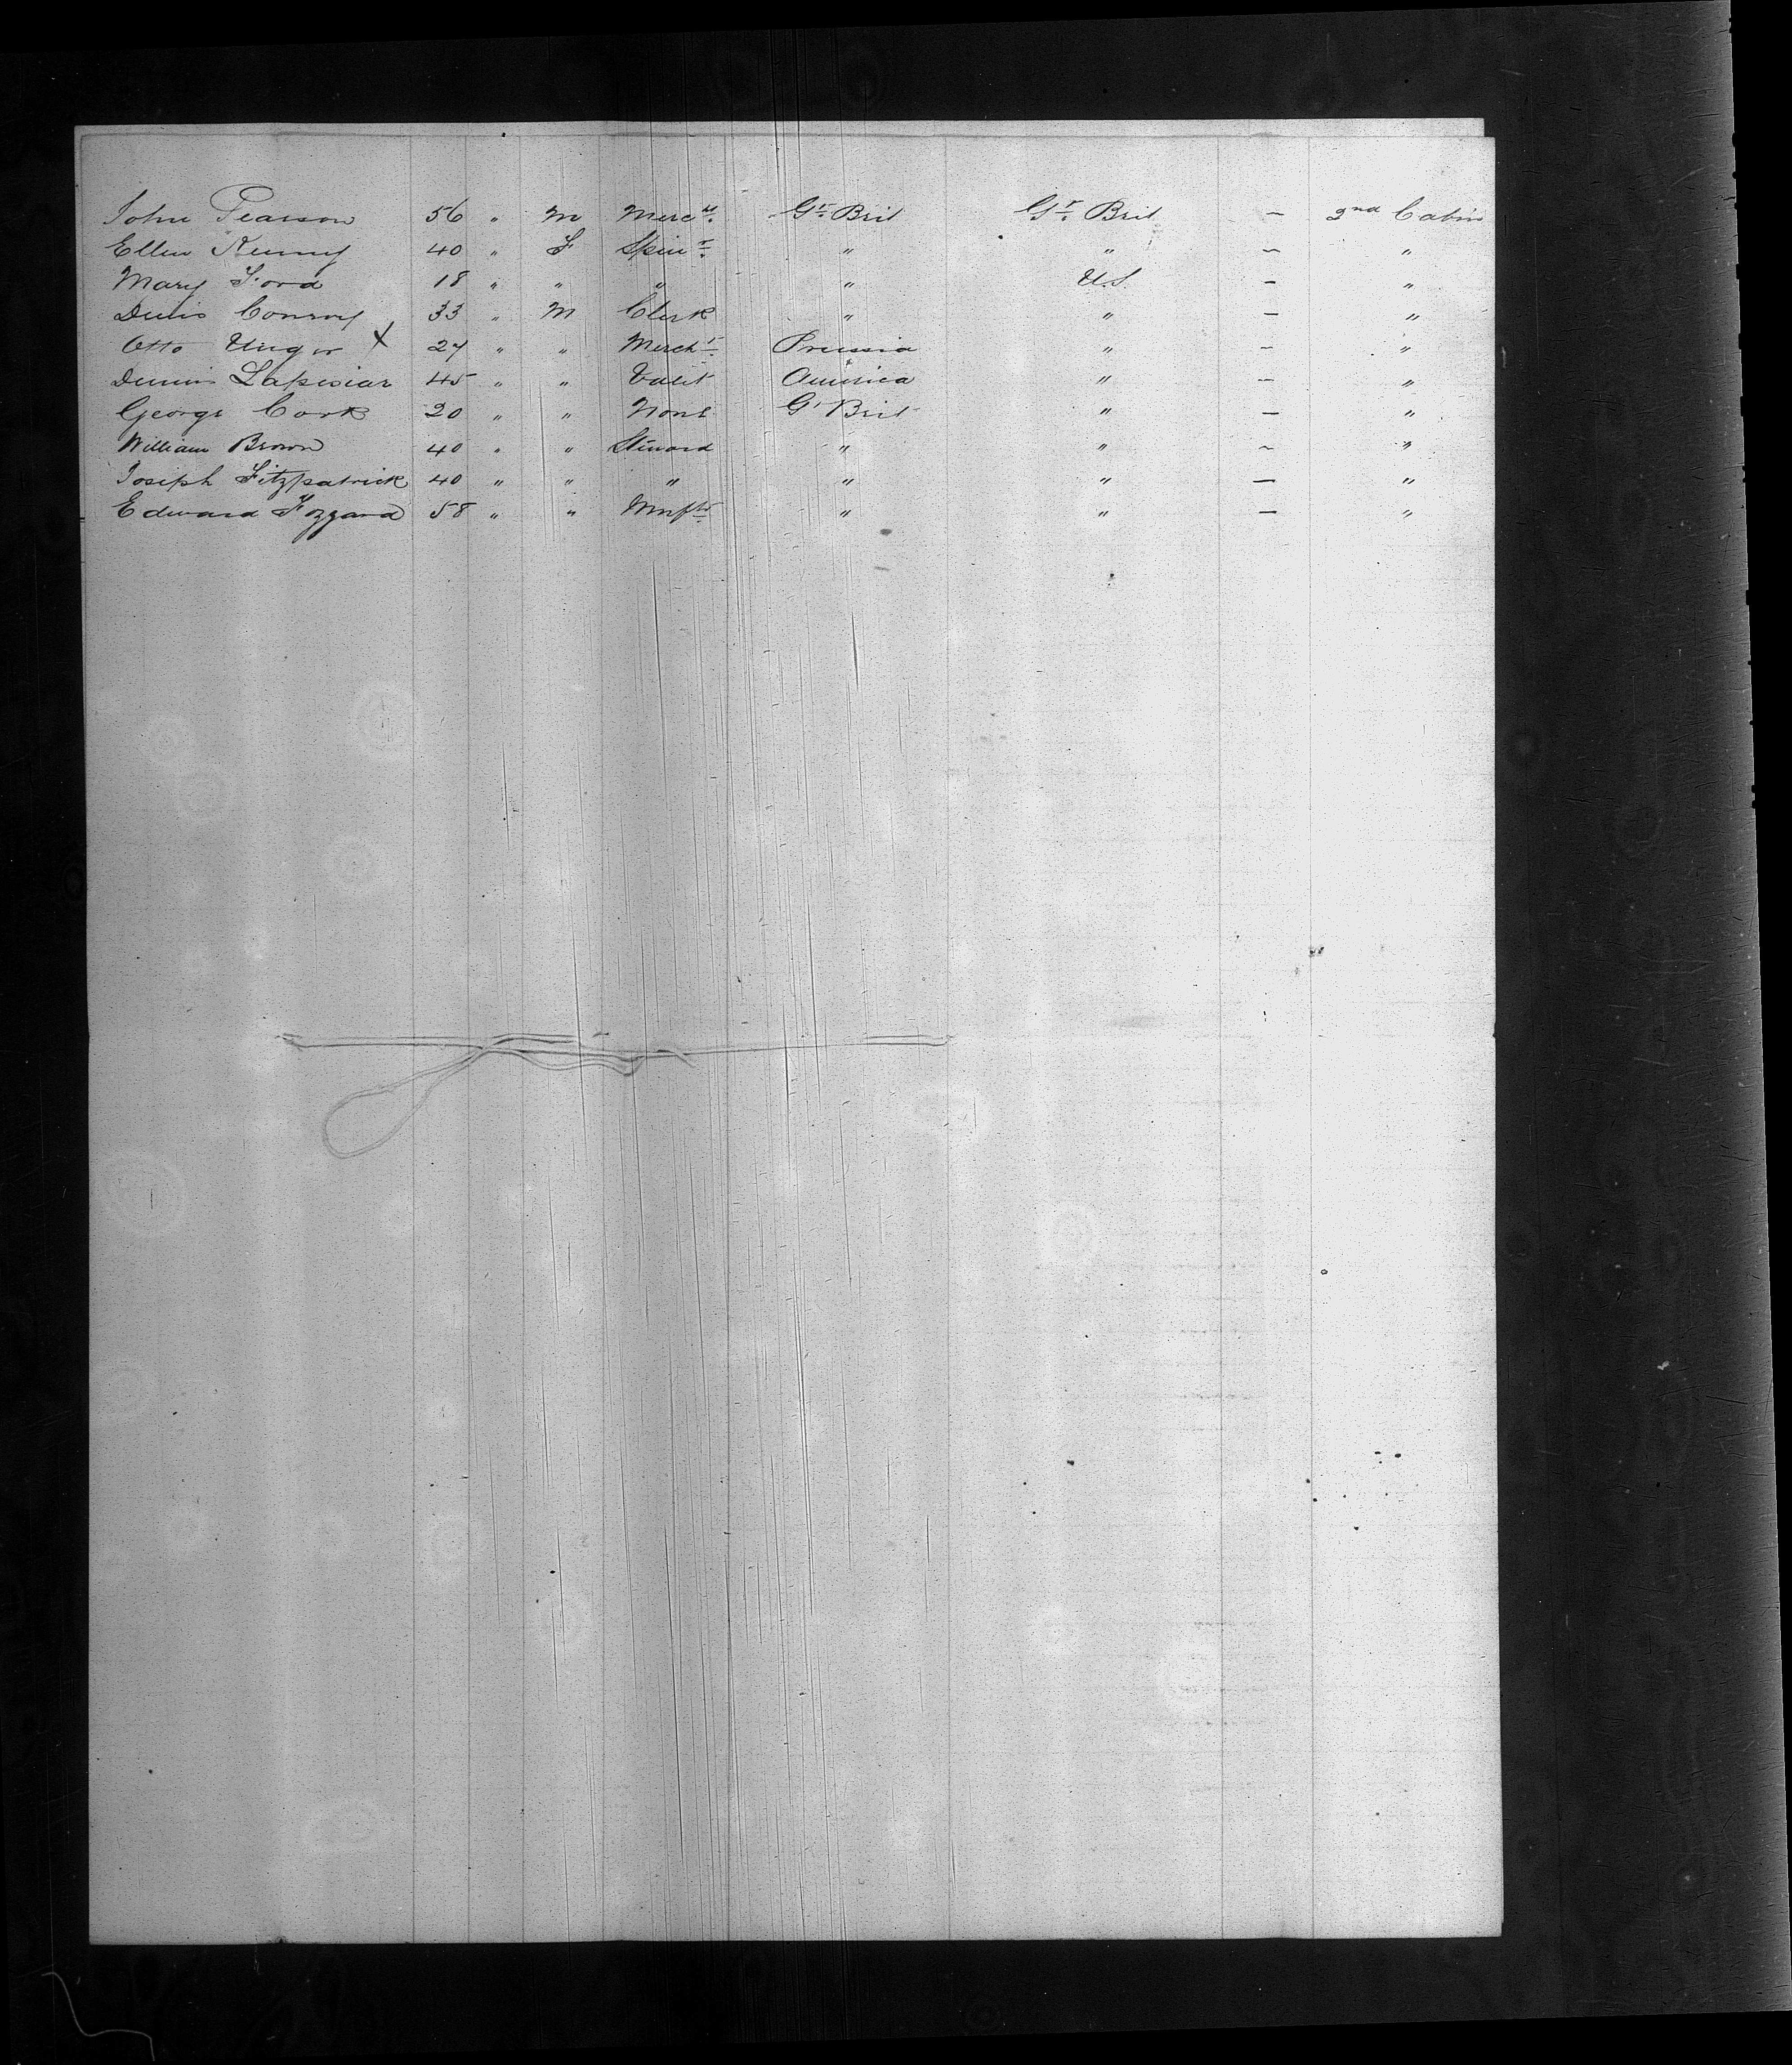 John Pearson 56 " M Merct. Gt. Brit Gt. Brit — 2nd Cabin
Ellen Kenny 40 " F Spinr. " " — "
Mary Ford 18 " " " " U.S. — "
Denis Conroy 33 " M Clerk " " — "
Otto Unger X 27 " " Mercht. Prussia " — "
Dennis 45 " " Valet America " — "
George Cork 20 " " None Gt Brit " — "
William Brown 40 " " Steward " " ~ "
Joseph Fitzpatrick 40 " " " " " — "
Edward Fozzard 58 " " Mnftr. " " — "